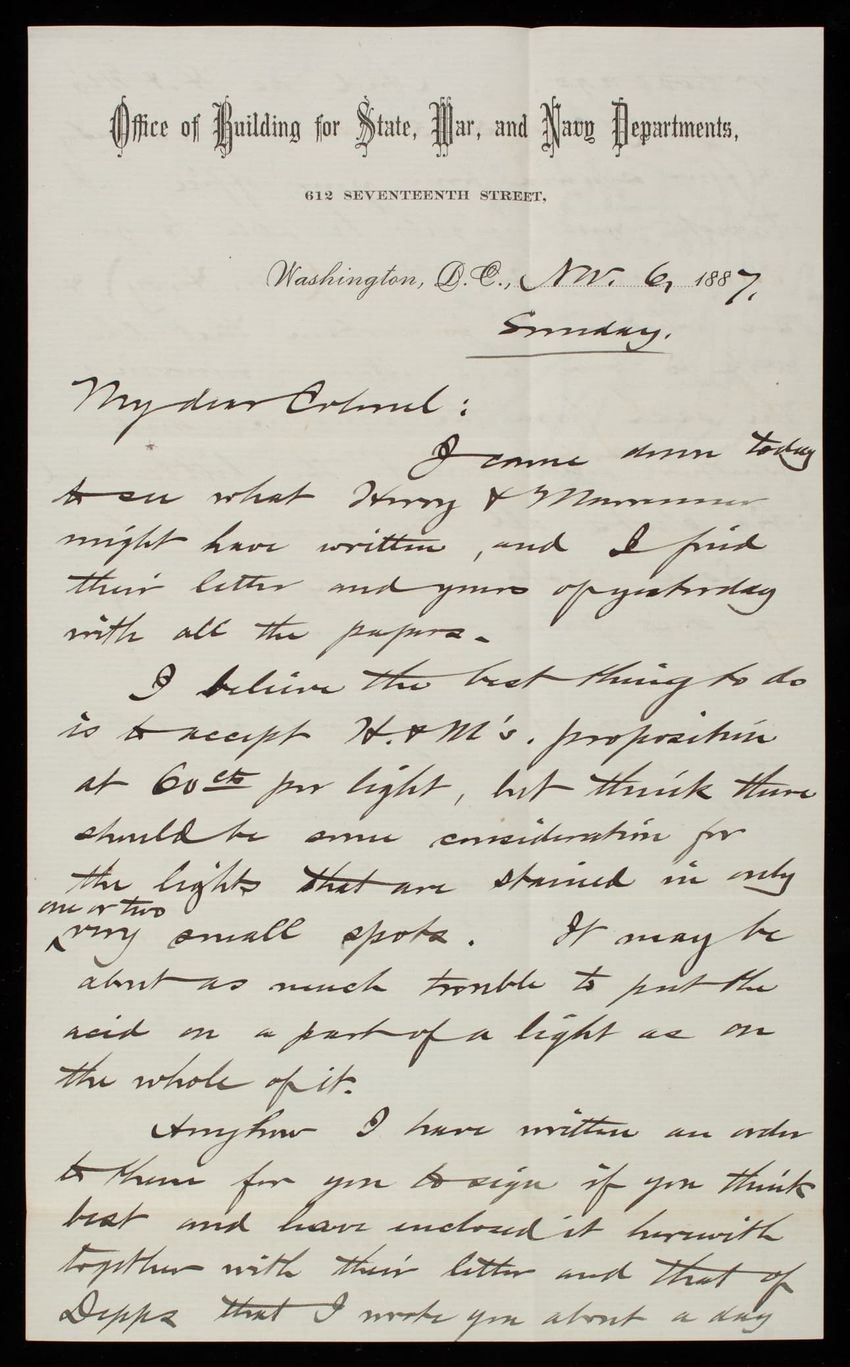 Office of Building for State, War, and Navy Departments,
612 SEVENTEENTH STREET,
Washington, D. C., Nov. 6, 1887.
Sunday.
My dear Colonel:
I came down today
to see what Henry &
might have written, and I find
their letter and yours of yesterday
with all the papers.
I believe the best thing to do
is to accept H. & M's. proposition
at 60 cts per light, but think there
should be some consideration for
the lights that are stained in only
one or two
very small spots. It may be
about as much trouble to put the
acid on a part of a light as on
the whole of it.
Anyhow I have written an order
to them for you to sign if you think
best and have enclosed it herewith
together with their letter and that of
Depps that I wrote you about a day